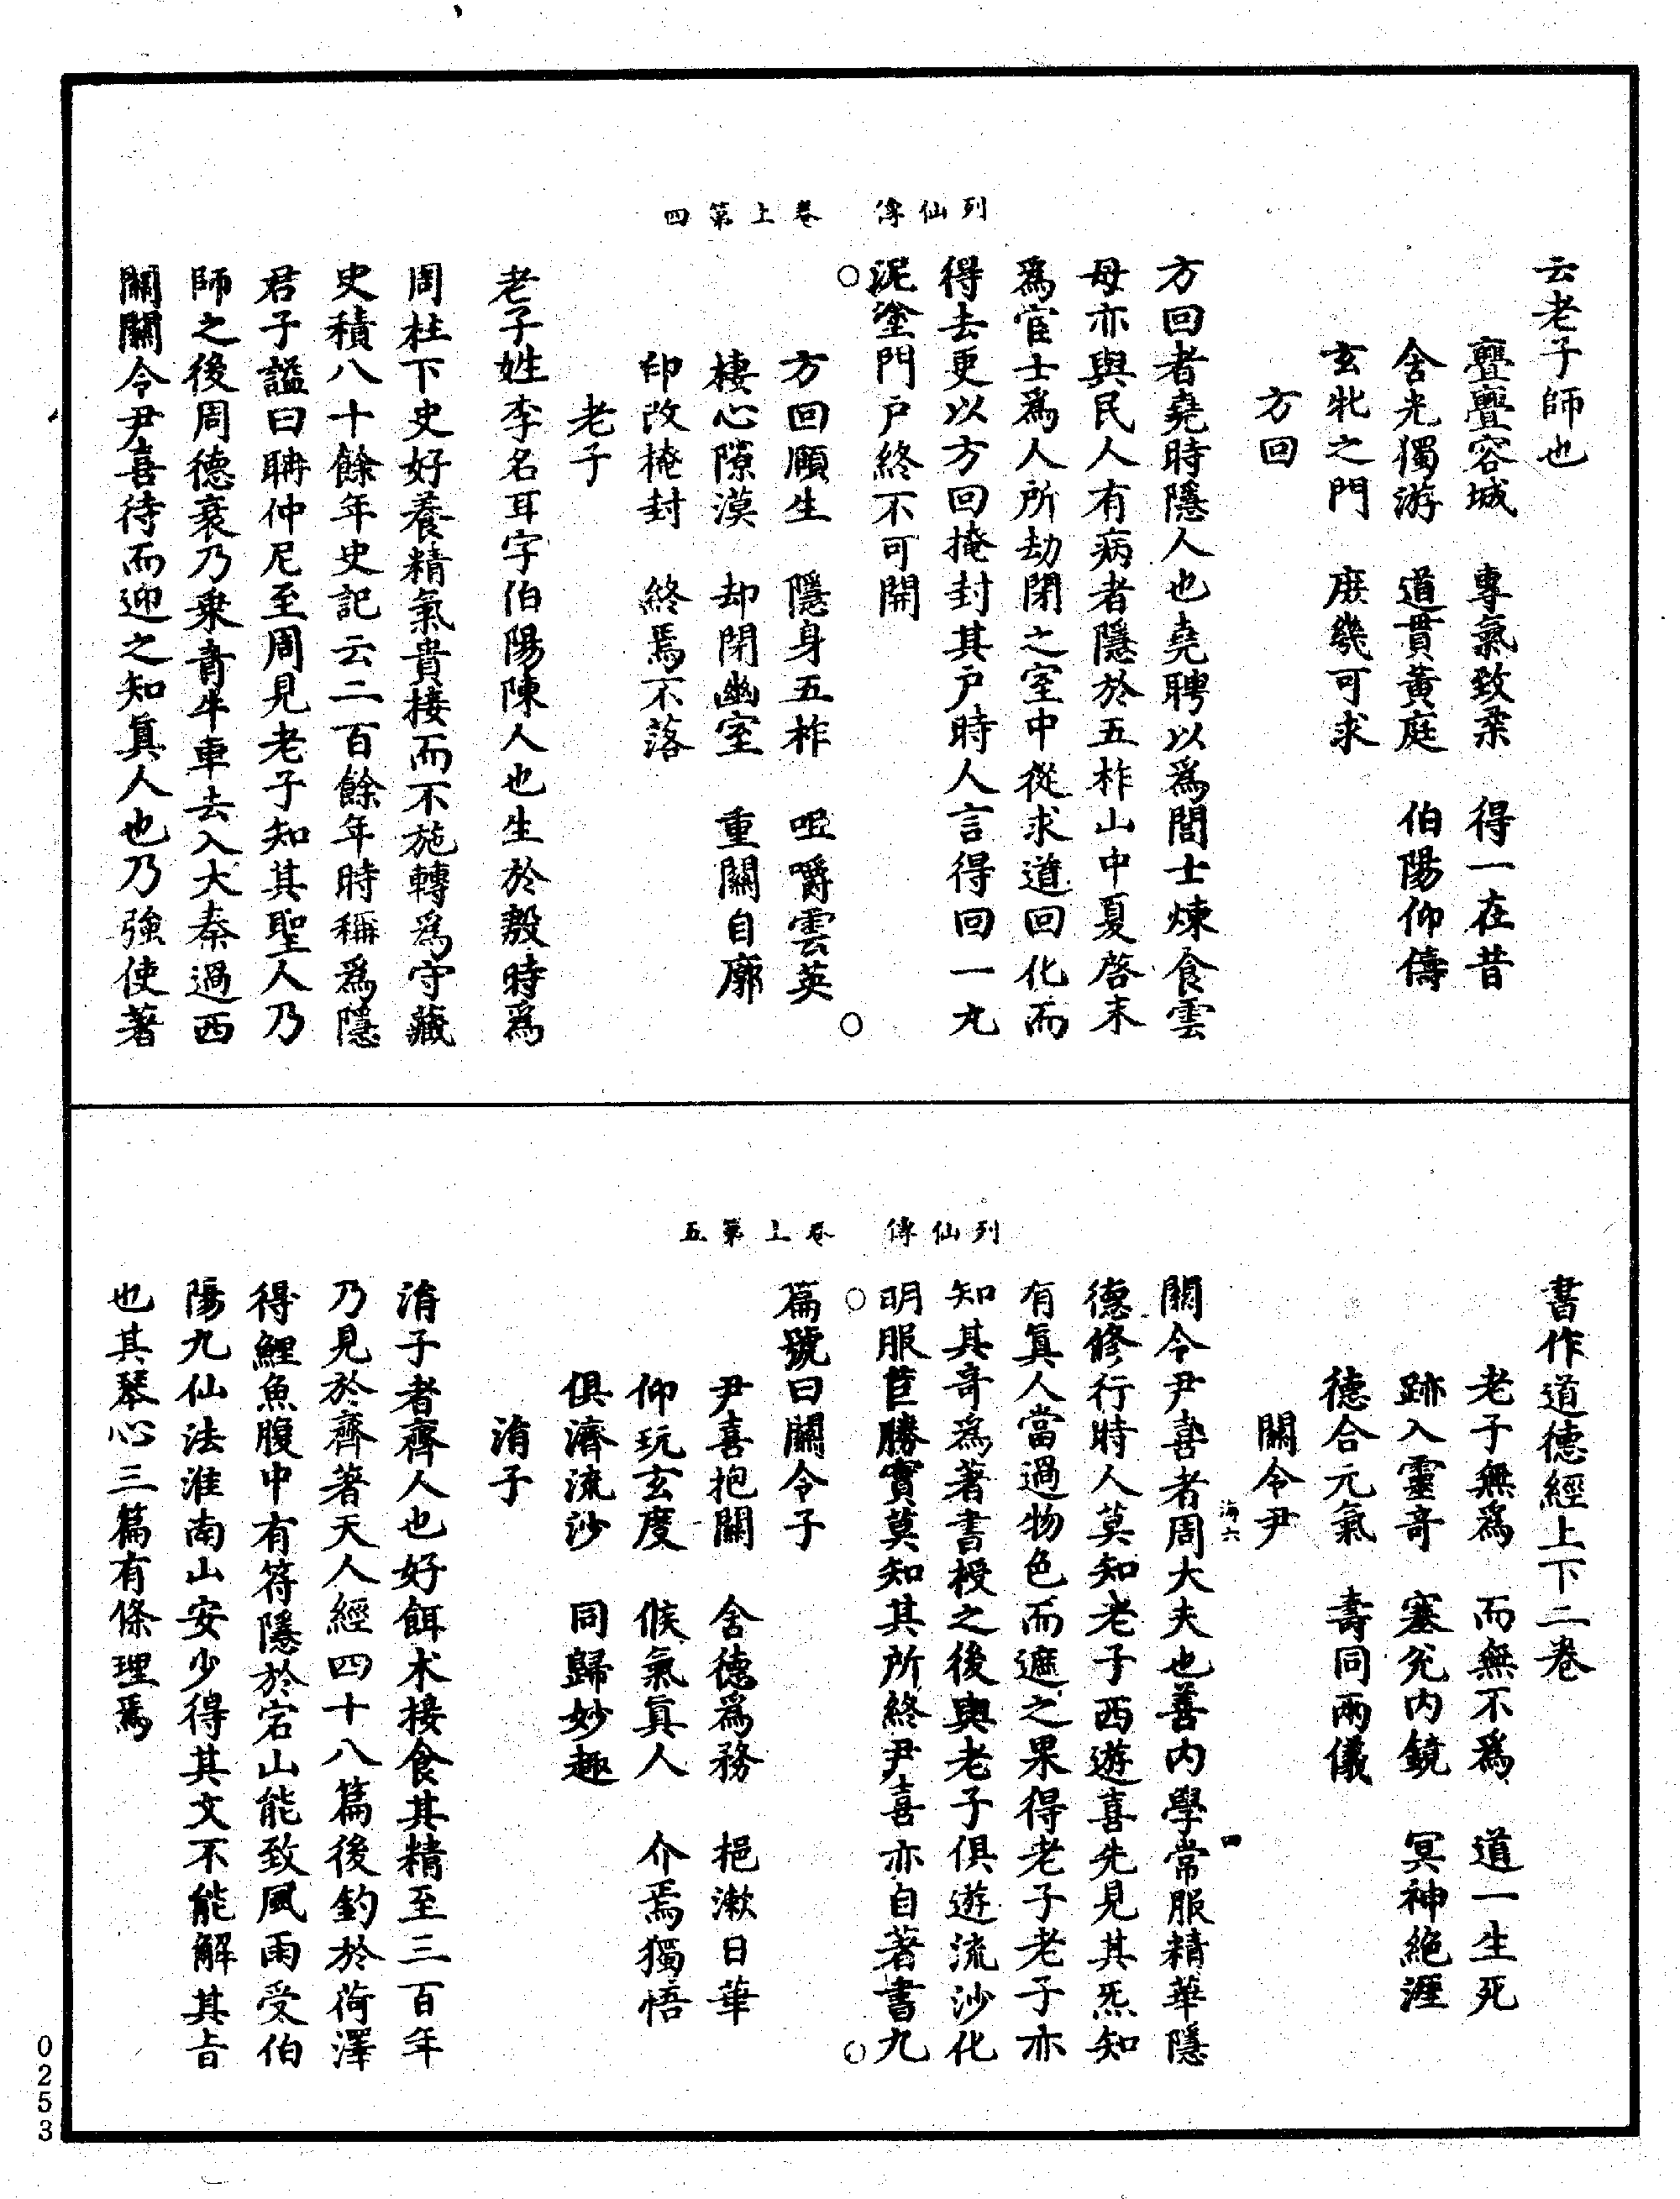 列仙傳 卷上第四
云老子師也
亹亹容城 專氣致柔 得一在昔
含光獨游 道貫黃庭 伯陽仰儔
玄牝之門 庶幾可求
方回
方回者堯時隱人也堯聘以爲閭士煉食雲
母亦與民人有病者隱於五柞山中夏啓末
爲宦士爲人所劫閉之室中從求道回化而
得去更以方回掩封其戶時人言得回一丸
泥塗門戶終不可開
方回頤生 隱身五柞 咀嚼雲英
棲心隙漠 却閉幽室 重關自廓
印改掩封 終焉不落
老子
老子姓李名耳字伯陽陳人也生於殷時爲
周柱下史好養精氣貴接而不施轉爲守藏
史積八十餘年史記云二百餘年時稱爲隱
君子謚曰聃仲尼至周見老子知其聖人乃
師之後周德衰乃乘青牛車去入大秦過西
關關令尹喜待而迎之知眞人也乃強使著
列仙傳 卷上第五
書作道德經上下二卷
老子無爲 而無不爲 道一生死
跡入靈奇 塞兌内鏡 冥神絶涯
德合元氣 壽同兩儀
關令尹
海六
四
關令尹喜者周大夫也善内學常服精華隱
德修行時人莫知老子西遊喜先見其炁知
有眞人當過物色而遮之果得老子老子亦
知其奇爲著書授之後與老子俱遊流沙化
明服苣勝實莫知其所終尹喜亦自著書九
篇號曰關令子
尹喜抱關 含德爲務 挹漱日華
仰玩玄度 候氣眞人 介焉獨悟
俱濟流沙 同歸妙趣
涓子
涓子者齊人也好餌术接食其精至三百年
乃見於齊著天人經四十八篇後釣於荷澤
得鯉魚腹中有符隱於宕山能致風雨受伯
陽九仙法淮南山安少得其文不能解其旨
也其琴心三篇有條理焉
0253